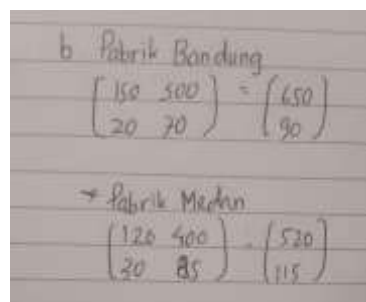 b Pabrik Bandung
(150 500) = (650)
(20 70) (90)
→ Pabrik Medan
(120 400) = (520)
(30 85) (115)